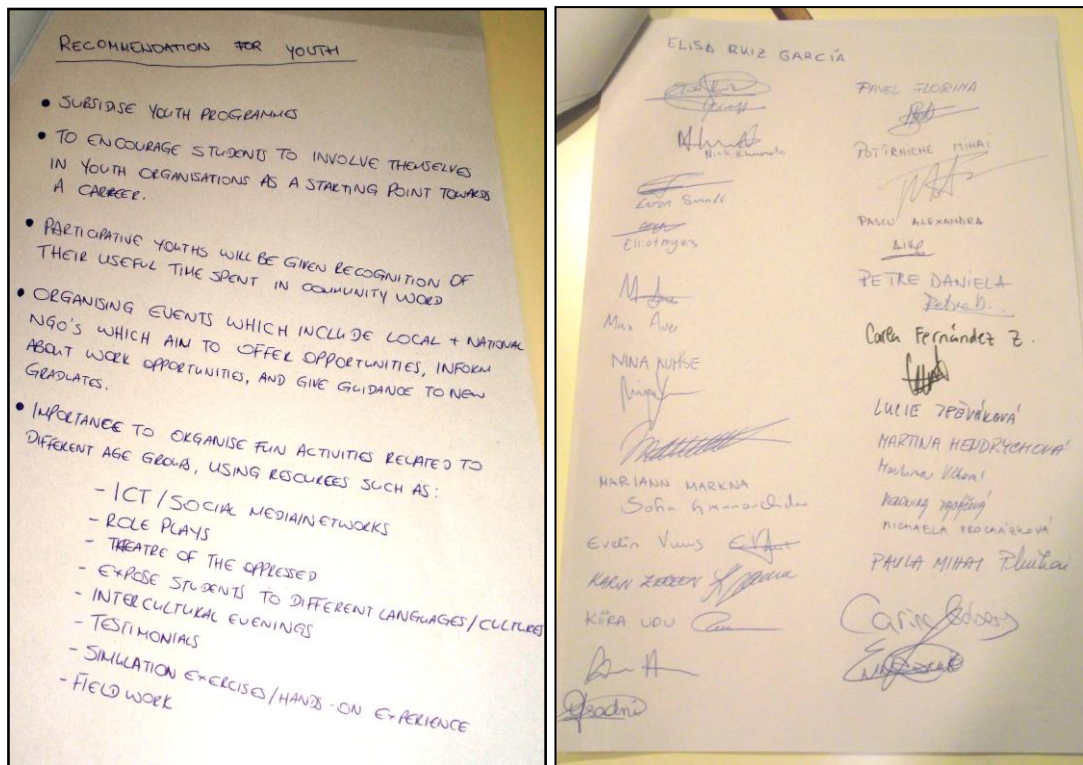 RECOMMENDATION FOR YOUTH
• SUBSIDISE YOUTH PROGRAMMES
• TO ENCOURAGE STUDENTS TO INVOLVE THEMSELVES
IN YOUTH ORGANISATIONS AS A STARTING POINT TOWARDS
A CAREER.
• PARTICIPATIVE YOUTHS WILL BE GIVEN RECOGNITION OF
THEIR USEFUL TIME SPENT IN COMMUNITY WORD
• ORGANISING EVENTS WHICH INCLUDE LOCAL + NATIONAL
NGO'S WHICH AIM TO OFFER OPPORTUNITIES, INFORM
ABOUT WORK OPPORTUNITIES, AND GIVE GUIDANCE TO NEW
GRADUATES.
• IMPORTANCE TO ORGANISE FUN ACTIVITIES RELATED TO
DIFFERENT AGE GROUPS, USING RESOURCES SUCH AS:
- ICT / SOCIAL MEDIA/NETWORKS
- ROLE PLAYS
- THEATRE OF THE OPPRESSED
- EXPOSE STUDENTS TO DIFFERENT LANGUAGES/CULTURES
- INTERCULTURAL EVENINGS
- TESTIMONIALS
- SIMULATION EXERCISES/HANDS-ON EXPERIENCE
- FIELD WORK
ELISA RUIZ GARCÍA
Eliot myers
Max Aver
NINA
MARIANN MARKNA
Sofia
Evelin
KARIN
KIIRA UDU
PAVEL FLORINA
POTIRNICHE MIHAI
PASCU ALEXANDRA
PETRE DANIELA
Petre D.
Carla Fernández Z.
LUCIE ZPĚVÁKOVÁ
MARTINA HENDRYCHOVÁ
Martina
MICHAELA PROCHÁZKOVÁ
PAULA MIHAI